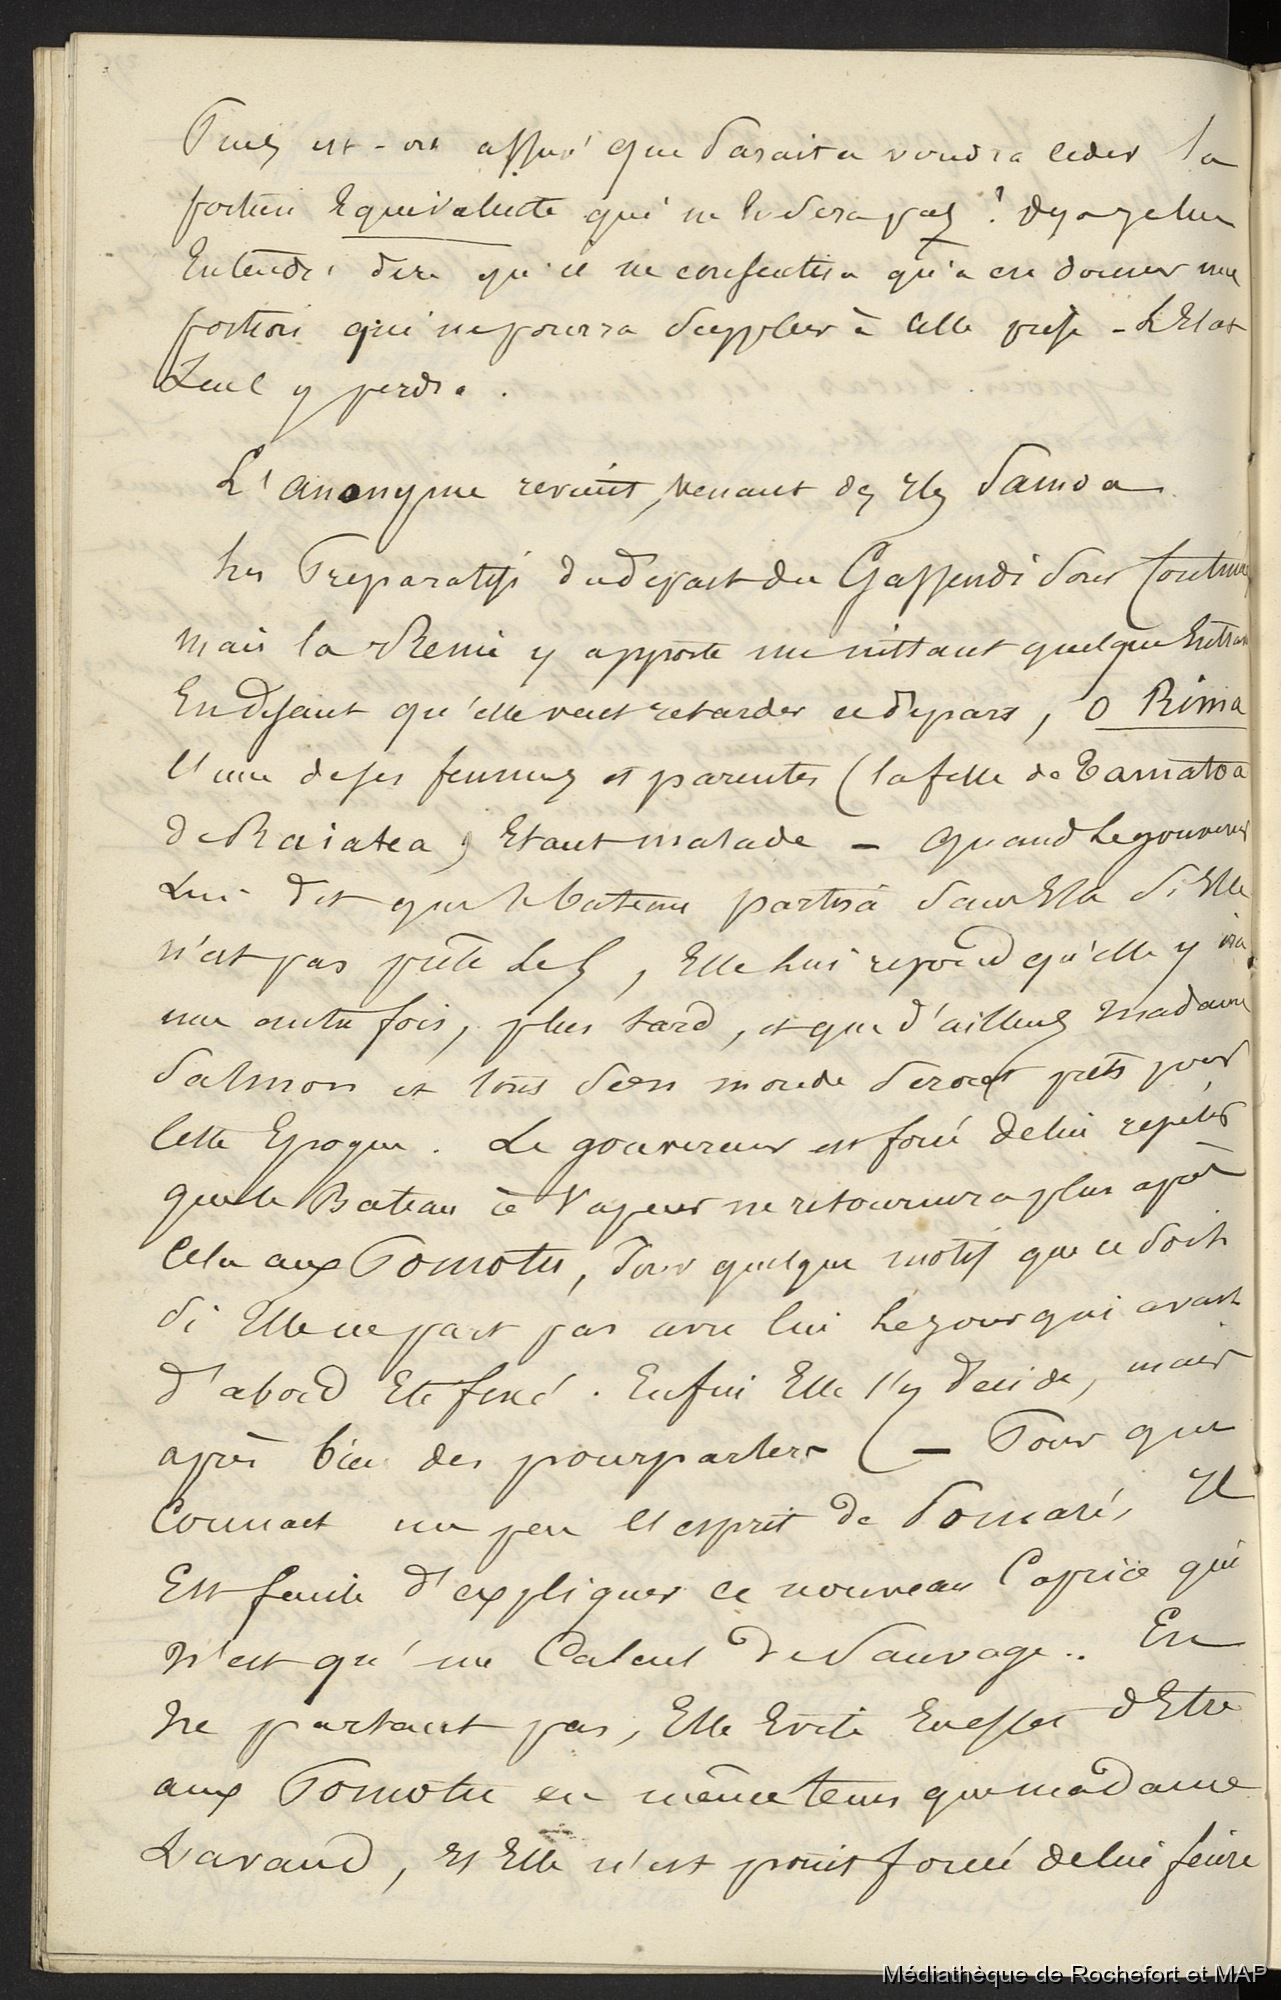 Puis est-on assuré que Daraita voudra ceder la
portion Equivalente qui ne le sera pas ? deja je l'ai
Entendu dire qu'il ne consentira qu'a en donner une
portion qui ne pourra suppleer à celle prise - L'Etat
Seul y perdra.
L'anonyme revient, venant des Iles Samoa
Les Preparatifs du depart du Gassendi sont continués
mais la Reine y apporte un instant quelque Entrave
En disant qu'elle veut retarder ce depart, O Rima
l'une de ses femmes et parentes (la fille de Tamatoa
de Raiatea) Etant malade - Quand le gouverneur
Lui dit que le bateau partira sans Elle si Elle
n'est pas prête le 5, Elle lui repond qu'elle y ira
une autre fois, plus tard, et que d'ailleurs Madame
Salmon et tous seon monde seront prêts pour
cette Epoque. Le gouverneur est forcé de lui repeter
que le Bateau à Vapeur ne retournera plus après
Cela aux Pomotu, Pour quelque motif que ce soit
Si Elle ne part pas avec lui le jour qui avait
d'abord Eté fixé. Enfin Elle s'y decide, mais
après bien des pourparlers (- Pour que
Connait un peu l'esprit de Pomaré, Il
Est facile d'expliquer ce nouveau Caprice qui
N'est qu'un Calcul de Sauvage.. En
Ne partant pas, Elle Evite En effet d'Etre
aux Pomotu en même tems que madame
Lavaud, Et Elle n'est point forcée de lui faire
Médiathèque de Rochefort et MAP